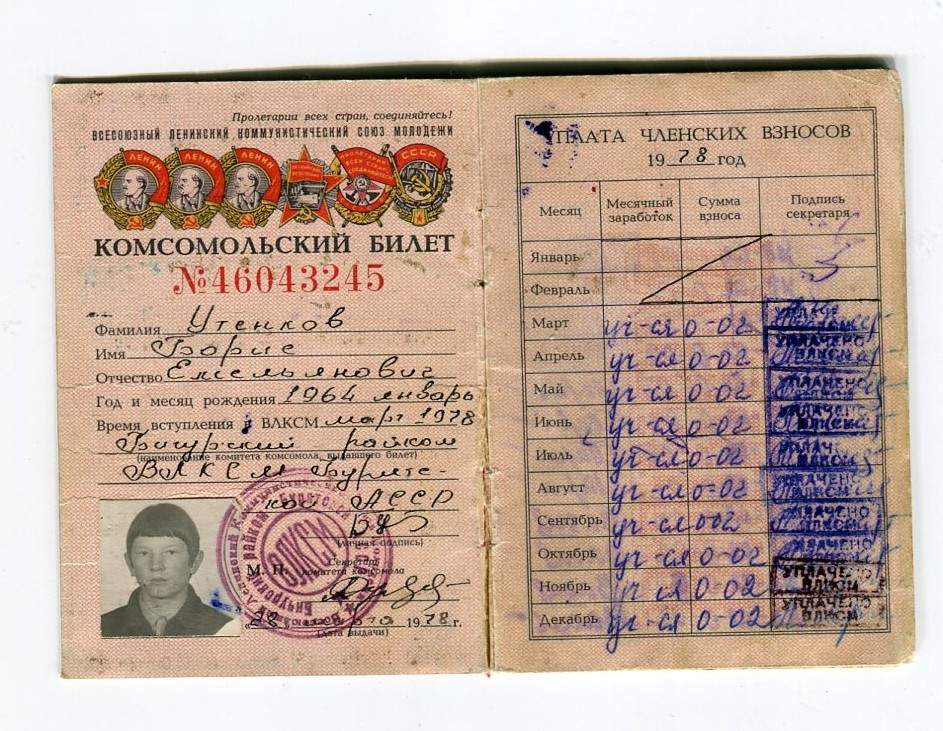 Пролетарии всех стран, соединяйтесь!
ВСЕСОЮЗНЫЙ ЛЕНИНСКИЙ КОММУНИСТИЧЕСКИЙ СОЮЗ МОЛОДЕЖИ
ЛЕНИН ЛЕНИН ЛЕНИН СССР
КОМСОМОЛЬСКИЙ БИЛЕТ
№46043245
Фамилия Утенков
Имя Борис
Отчество Емельянович
Год и месяц рождения 1964 январь
Время вступления в ВЛКСМ март 1978
Бичурский райком
(наименование комитета комсомола, выдавшего билет)
ВЛКСМ Бурятс-
кой АССР
(личная подпись)
М. П. Секретарь
комитета комсомола
"28" 1978 г.
(дата выдачи)
УПЛАТА ЧЛЕНСКИХ ВЗНОСОВ
1978 год
Месяц Месячный заработок Сумма взноса Подпись секретаря
Январь
Февраль
Март уч-ся 0-02 УПЛАЧЕНО
Апрель уч-ся 0-02 УПЛАЧЕНО ВЛКСМ
Май уч-ся 0-02 УПЛАЧЕНО ВЛКСМ
Июнь уч-ся 0-02 УПЛАЧЕНО ВЛКСМ
Июль уч-ся 0-02 УПЛАЧЕНО
Август уч-ся 0-02 УПЛАЧЕНО ВЛКСМ
Сентябрь уч-ся 0-02 УПЛАЧЕНО ВЛКСМ
Октябрь уч-ся 0-02 УПЛАЧЕНО
Ноябрь уч-ся 0-02 УПЛАЧЕНО ВЛКСМ
Декабрь уч-ся 0-02 УПЛАЧЕНО ВЛКСМ